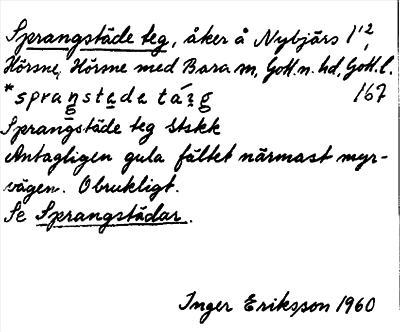 Sprangstäde teg, åker å Nybjärs 1¹²,
Hörsne, Hörsne med Bara sn, Gotl. n. hd, Gotl. l.
*sprangstade tag 167
Sprangstäde teg Stskk
Antagligen gula fältet närmast myr-
vägen. Obrukligt.
Se Sprangstädar.
Inger Eriksson 1960